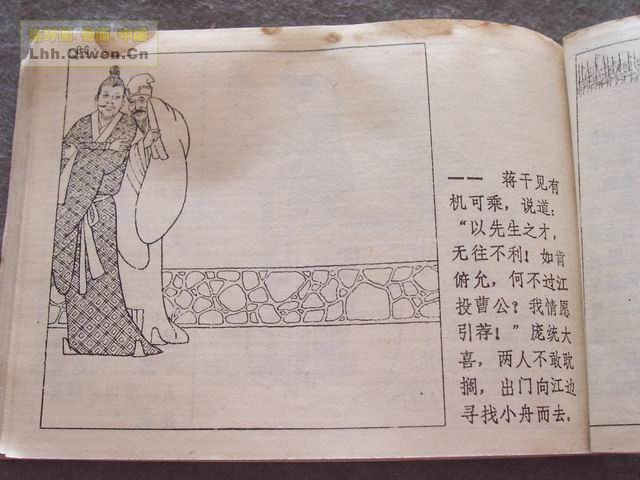 Lhh.Qiwen.Cn
一一　蒋干见有
机可乘，说道：
“以先生之才，
无往不利！如肯
俯允，何不过江
投曹公？我情愿
引荐！”庞统大
喜，两人不敢耽
搁，出门向江边
寻找小舟而去。